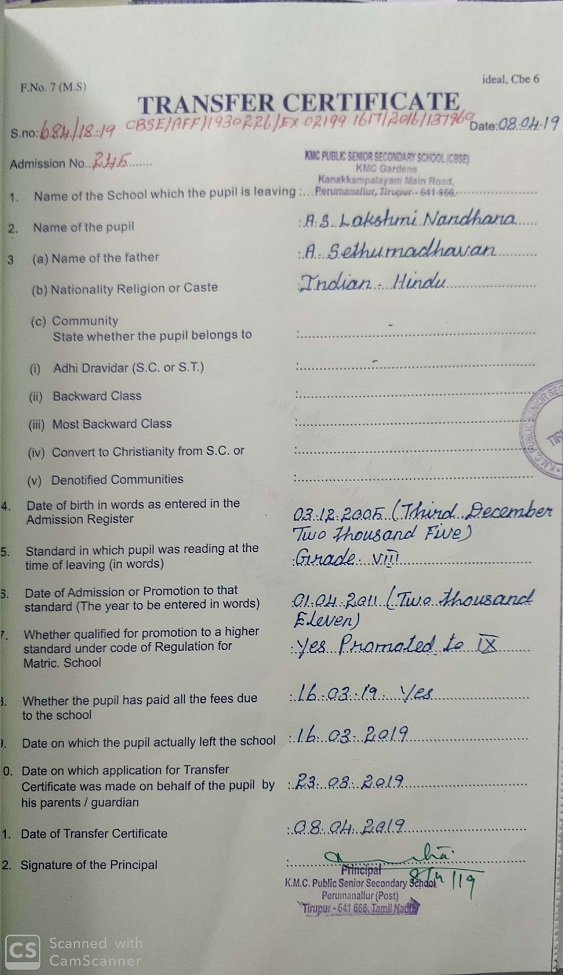 F.No. 7 (M.S)
ideal, Cbe 6
TRANSFER CERTIFICATE
S.no: 684/18-19 CBSE/AFF/1930226/EX-02199 1617/2016/137960 Date: 08.04.19
Admission No. 245
KMC PUBLIC SENIOR SECONDARY SCHOOL (CBSE)
KMC Gardens
Kanakkampalayam Main Road,
1. Name of the School which the pupil is leaving : Perumanallur, Tirupur - 641 666.
2. Name of the pupil : A.S. Lakshmi Nandhana
3 (a) Name of the father : A. Sethumadhavan
(b) Nationality Religion or Caste : Indian - Hindu
(c) Community -
State whether the pupil belongs to :
(i) Adhi Dravidar (S.C. or S.T.) : -
(ii) Backward Class :
(iii) Most Backward Class :
(iv) Convert to Christianity from S.C. or :
(v) Denotified Communities :
4. Date of birth in words as entered in the
Admission Register 03.12.2005 (Third December
Two thousand Five)
5. Standard in which pupil was reading at the
time of leaving (in words) : Grade VIII
6. Date of Admission or Promotion to that
standard (The year to be entered in words) 01.04.2011 (Two thousand
Eleven)
7. Whether qualified for promotion to a higher
standard under code of Regulation for : Yes Promoted to IX
Matric. School
8. Whether the pupil has paid all the fees due : 16-03-19. Yes
to the school
9. Date on which the pupil actually left the school : 16.03.2019
0. Date on which application for Transfer
Certificate was made on behalf of the pupil by : 23.03.2019
his parents / guardian
1. Date of Transfer Certificate : 08.04.2019
2. Signature of the Principal :
8/4/19
Principal
K.M.C. Public Senior Secondary School
Perumanallur (Post)
Tirupur - 641 666. Tamil Nadu
CS Scanned with
CamScanner